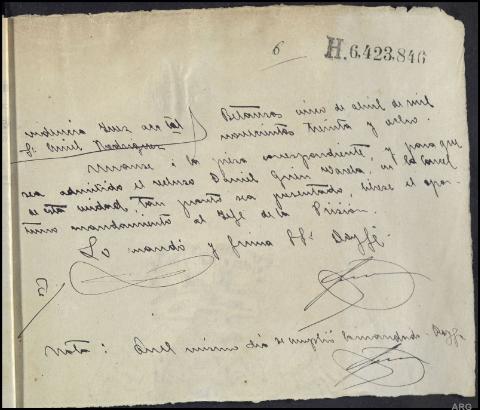 6
H.6.423.846
Providencia Juez acctal
Sr Emil Rodriguez
Betanzos cinco de abril de mil
novecientos treinta y ocho.
Unanse á la pieza correspondiente, y para que
sea admitido el recluso Daniel Varela, en la carcel
de esta ciudad, tan pronto sea presentado, librese el opor-
tuno mandamiento al Jefe de la Prision.
Lo mandó y firma SSª Doyfé.
Nota: En el mismo dia se cumplió lo mandado. Doyfe
ARG